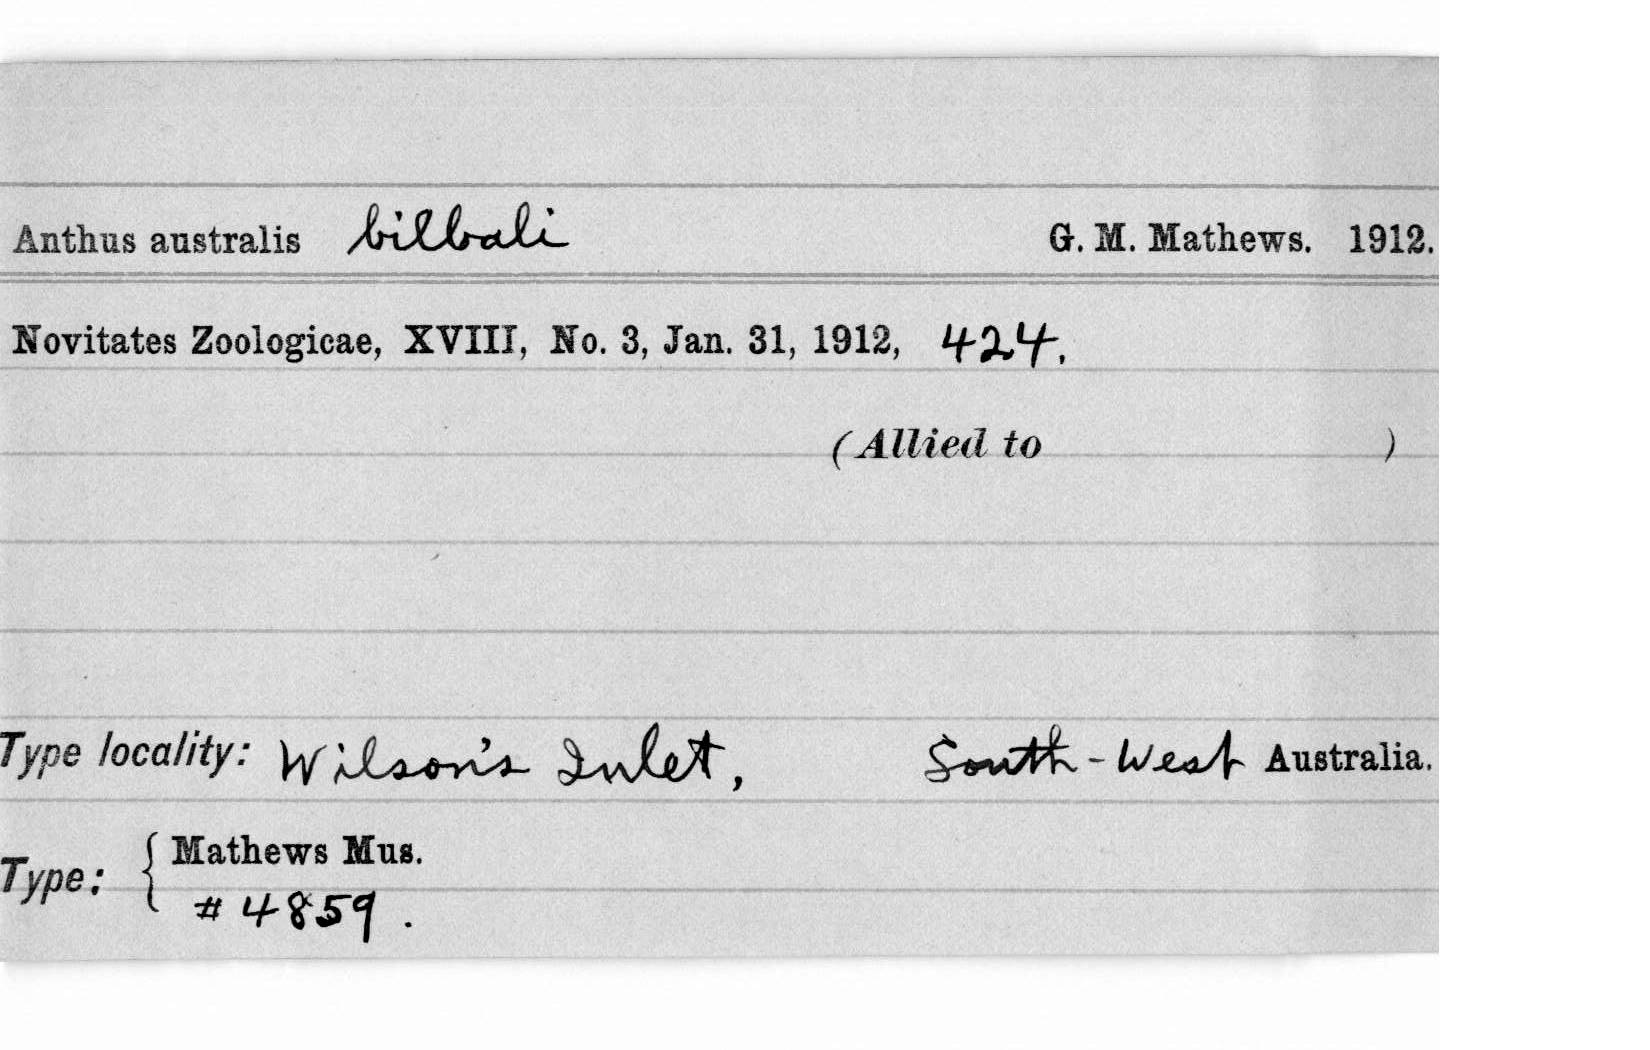 Anthus australis bilbali G. M. Mathews. 1912.
Novitates Zoologicae, XVIII, No. 3, Jan. 31, 1912, 424.
(Allied to )
Type locality: Wilson's Inlet, South-West Australia.
Type: { Mathews Mus.
# 4859.